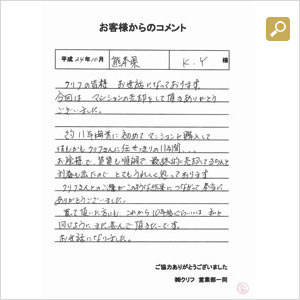 お客様からのコメント
平成 24年10月 熊本県 K.Y 様
クリフの皆様 お世話になっております。
今回は マンションの売却をして頂きありがとう
ございました。
約11年前に初めてマンションを購入して
クリフさんに任せっきりの11年間、、、
お陰様で 賃貸も順調で 最終的に売却してもらい
利益も出たので とてもうれしく思っております。
クリフさんとのご縁がこのような結果につながって 本当に
ありがとうございました。
買って頂いた方にも これから10年後ぐらいには 私と
同じように また喜んで頂きたいです。
お世話になりました。
ご協力ありがとうございました
㈱クリフ 営業部一同